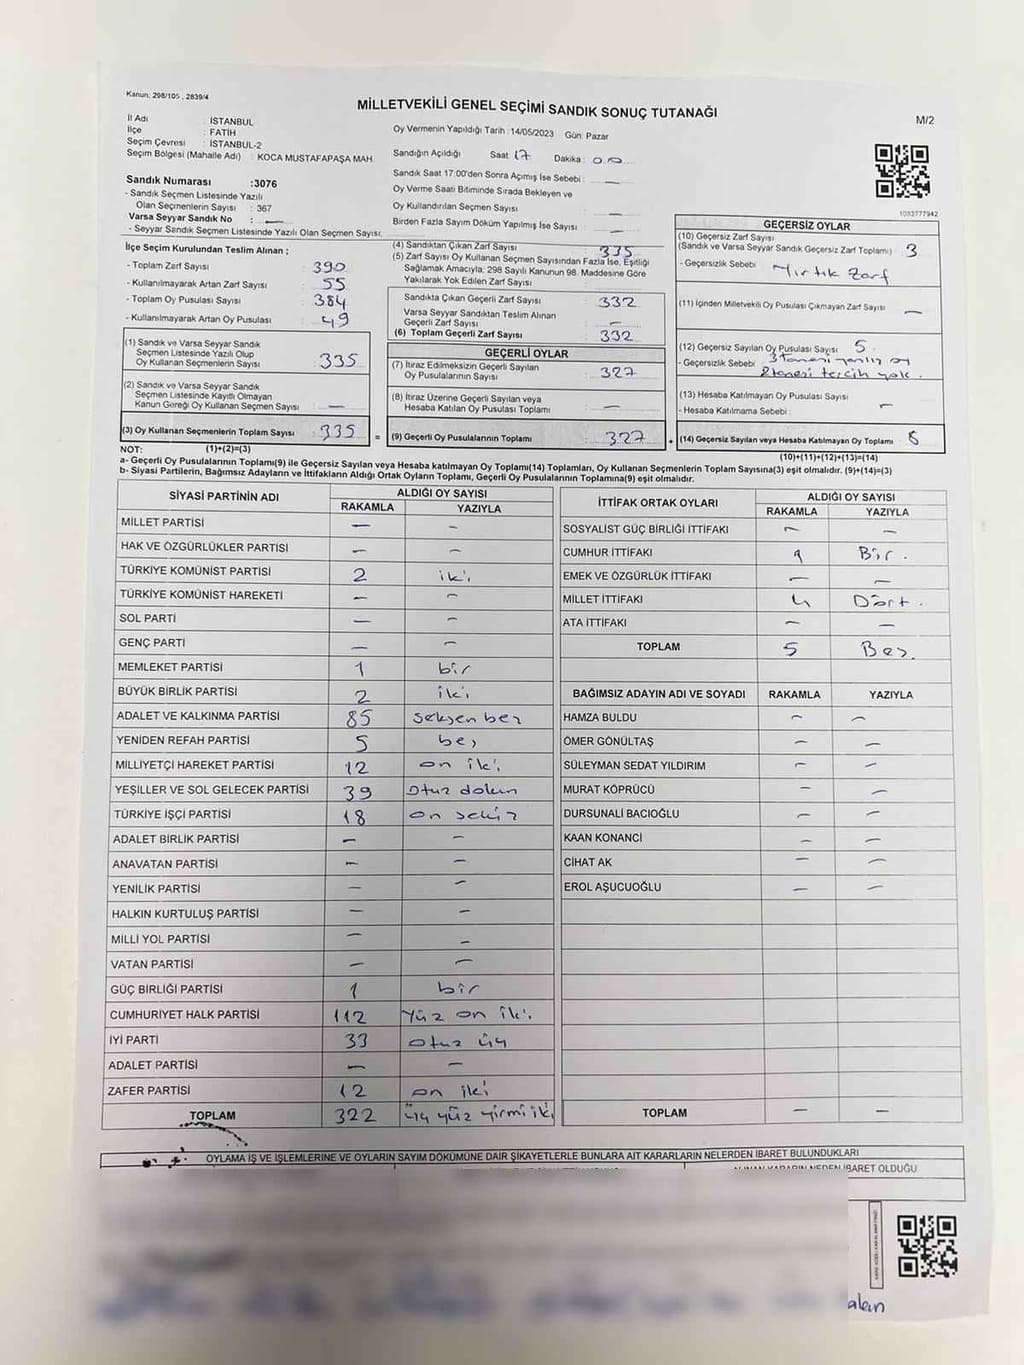 Kanun: 298/105 , 2839/4
MİLLETVEKİLİ GENEL SEÇİMİ SANDIK SONUÇ TUTANAĞI
M/2
İl Adı : İSTANBUL
İlçe : FATİH
Seçim Çevresi : İSTANBUL-2
Seçim Bölgesi (Mahalle Adı) : KOCA MUSTAFAPAŞA MAH
Sandık Numarası :3076
- Sandık Seçmen Listesinde Yazılı
Olan Seçmenlerin Sayısı : 367
Varsa Seyyar Sandık No : —
- Seyyar Sandık Seçmen Listesinde Yazılı Olan Seçmen Sayısı:
Oy Vermenin Yapıldığı Tarih : 14/05/2023 Gün: Pazar
Sandığın Açıldığı Saat 17 Dakika : 00
Sandık Saat 17:00'den Sonra Açımış İse Sebebi : —
Oy Verme Saati Bitiminde Sırada Bekleyen ve
Oy Kullandırılan Seçmen Sayısı : —
Birden Fazla Sayım Döküm Yapılmış İse Sayısı : —
1083777942
İlçe Seçim Kurulundan Teslim Alınan ;
- Toplam Zarf Sayısı : 390
- Kullanılmayarak Artan Zarf Sayısı : 55
- Toplam Oy Pusulası Sayısı : 384
- Kullanılmayarak Artan Oy Pusulası : 49
(1) Sandık ve Varsa Seyyar Sandık
Seçmen Listesinde Yazılı Olup
Oy Kullanan Seçmenlerin Sayısı : 335
(2) Sandık ve Varsa Seyyar Sandık
Seçmen Listesinde Kayıtlı Olmayan
Kanun Gereği Oy Kullanan Seçmen Sayısı : —
(3) Oy Kullanan Seçmenlerin Toplam Sayısı : 335
(4) Sandıktan Çıkan Zarf Sayısı : 335
(5) Zarf Sayısı Oy Kullanan Seçmen Sayısından Fazla İse, Eşitliği
Sağlamak Amacıyla; 298 Sayılı Kanunun 98. Maddesine Göre
Yakılarak Yok Edilen Zarf Sayısı :
Sandıkta Çıkan Geçerli Zarf Sayısı : 332
Varsa Seyyar Sandıktan Teslim Alınan
Geçerli Zarf Sayısı : —
(6) Toplam Geçerli Zarf Sayısı : 332
GEÇERLİ OYLAR
(7) İtiraz Edilmeksizin Geçerli Sayılan
Oy Pusulalarının Sayısı : 327
(8) İtiraz Üzerine Geçerli Sayılan veya
Hesaba Katılan Oy Pusulası Toplamı : —
= (9) Geçerli Oy Pusulalarının Toplamı : 327
GEÇERSİZ OYLAR
(10) Geçersiz Zarf Sayısı
(Sandık ve Varsa Seyyar Sandık Geçersiz Zarf Toplamı) : 3
- Geçersizlik Sebebi : Yırtık Zarf
(11) İçinden Milletvekili Oy Pusulası Çıkmayan Zarf Sayısı : —
(12) Geçersiz Sayılan Oy Pusulası Sayısı : 5
- Geçersizlik Sebebi : 3 tanesi yanlış oy
2 tanesi tercih yok.
(13) Hesaba Katılmayan Oy Pusulası Sayısı : —
- Hesaba Katılmama Sebebi :
(14) Geçersiz Sayılan veya Hesaba Katılmayan Oy Toplamı : 8
NOT: (1)+(2)=(3) (10)+(11)+(12)+(13)=(14)
a- Geçerli Oy Pusulalarının Toplamı(9) ile Geçersiz Sayılan veya Hesaba katılmayan Oy Toplamı(14) Toplamları, Oy Kullanan Seçmenlerin Toplam Sayısına(3) eşit olmalıdır. (9)+(14)=(3)
b- Siyasi Partilerin, Bağımsız Adayların ve İttifakların Aldığı Ortak Oyların Toplamı, Geçerli Oy Pusulalarının Toplamına(9) eşit olmalıdır.
SİYASİ PARTİNİN ADI ALDIĞI OY SAYISI
RAKAMLA YAZIYLA
MİLLET PARTİSİ — —
HAK VE ÖZGÜRLÜKLER PARTİSİ — —
TÜRKİYE KOMÜNİST PARTİSİ 2 iki
TÜRKİYE KOMÜNİST HAREKETİ — —
SOL PARTİ — —
GENÇ PARTİ — —
MEMLEKET PARTİSİ 1 bir
BÜYÜK BİRLİK PARTİSİ 2 iki
ADALET VE KALKINMA PARTİSİ 85 seksen beş
YENİDEN REFAH PARTİSİ 5 beş
MİLLİYETÇİ HAREKET PARTİSİ 12 on iki
YEŞİLLER VE SOL GELECEK PARTİSİ 39 otuz dokuz
TÜRKİYE İŞÇİ PARTİSİ 18 on sekiz
ADALET BİRLİK PARTİSİ — —
ANAVATAN PARTİSİ — —
YENİLİK PARTİSİ — —
HALKIN KURTULUŞ PARTİSİ — —
MİLLİ YOL PARTİSİ — —
VATAN PARTİSİ — —
GÜÇ BİRLİĞİ PARTİSİ 1 bir
CUMHURİYET HALK PARTİSİ 112 yüz on iki
İYİ PARTİ 33 otuz üç
ADALET PARTİSİ — —
ZAFER PARTİSİ 12 on iki
TOPLAM 322 üç yüz yirmi iki
İTTİFAK ORTAK OYLARI ALDIĞI OY SAYISI
RAKAMLA YAZIYLA
SOSYALİST GÜÇ BİRLİĞİ İTTİFAKI — —
CUMHUR İTTİFAKI 1 Bir.
EMEK VE ÖZGÜRLÜK İTTİFAKI — —
MİLLET İTTİFAKI 4 Dört.
ATA İTTİFAKI — —
TOPLAM 5 Beş.
BAĞIMSIZ ADAYIN ADI VE SOYADI RAKAMLA YAZIYLA
HAMZA BULDU — —
ÖMER GÖNÜLTAŞ — —
SÜLEYMAN SEDAT YILDIRIM — —
MURAT KÖPRÜCÜ — —
DURSUNALİ BACIOĞLU — —
KAAN KONANCİ — —
CİHAT AK — —
EROL AŞUCUOĞLU — —
TOPLAM — —
OYLAMA İŞ VE İŞLEMLERİNE VE OYLARIN SAYIM DÖKÜMÜNE DAİR ŞİKAYETLERLE BUNLARA AİT KARARLARIN NELERDEN İBARET BULUNDUKLARI
ALINAN KARARIN NEDEN İBARET OLDUĞU